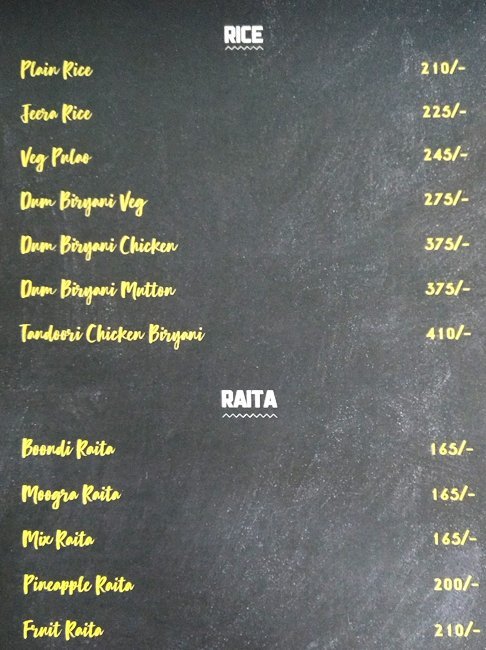 RICE
Plain Rice 210/-
Jeera Rice 225/-
Veg Pulao 245/-
Dum Biryani Veg 275/-
Dum Biryani Chicken 375/-
Dum Biryani Mutton 375/-
Tandoori Chicken Biryani 410/-
RAITA
Boondi Raita 165/-
Moogra Raita 165/-
Mix Raita 165/-
Pineapple Raita 200/-
Fruit Raita 210/-